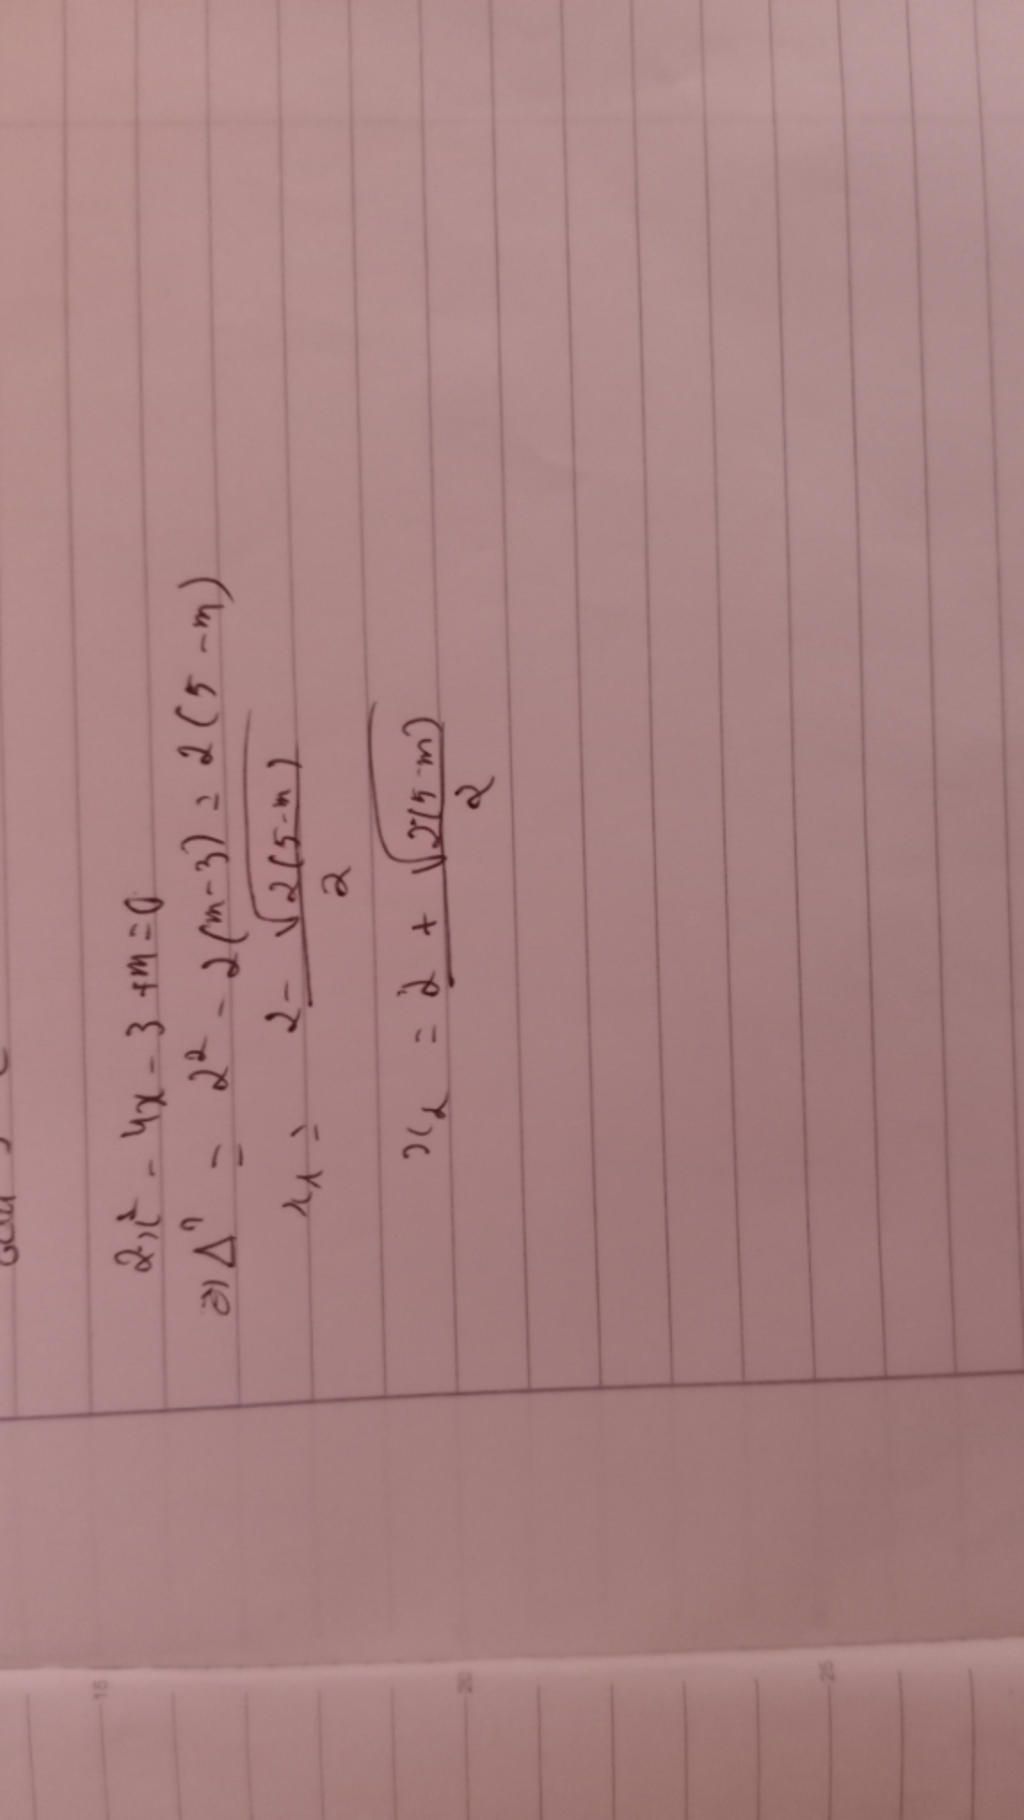 2x² - 4x - 3 + m = 0
a) Δ' = 2² - 2(m-3) = 2(5-m)
x₁ = (2 - √(2(5-m)))/2
x₂ = (2 + √(2(5-m)))/2
15
20
25